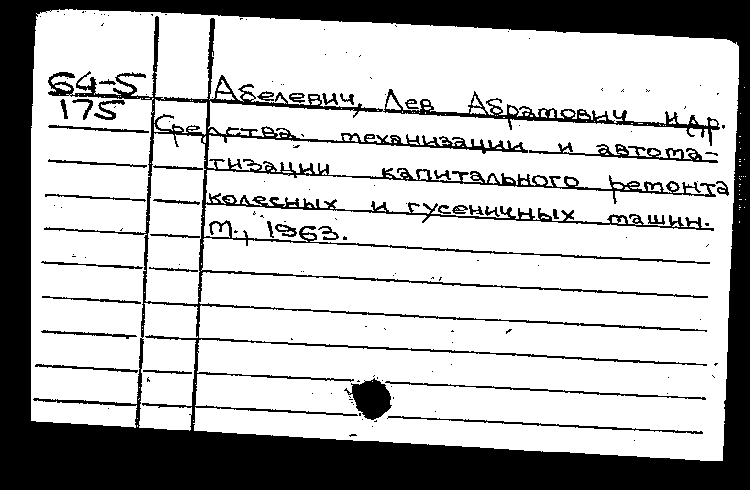 64-5
175
Абелевич, Лев Абрамович и др.
Средства механизации и автома-
тизации капитального ремонта
колесных и гусеничных машин.
М., 1963.